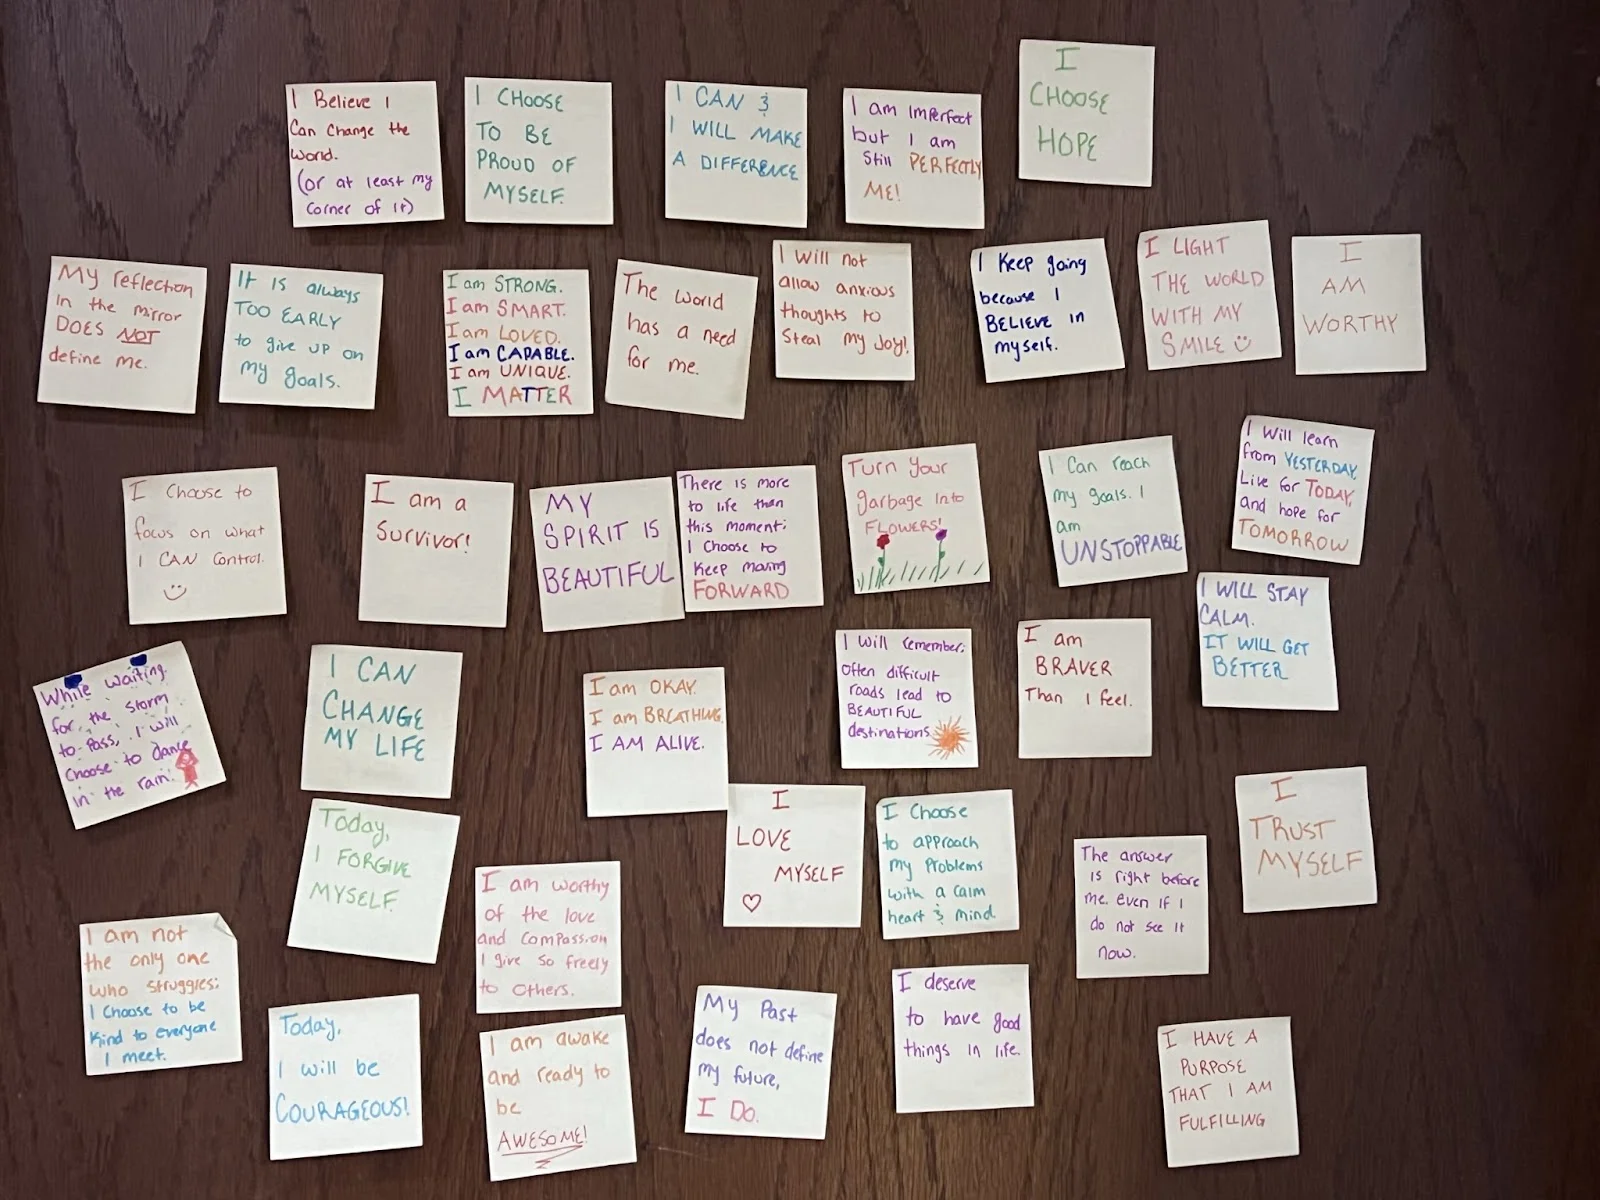 I Believe I
Can Change the
World.
(or at least my
Corner of it)
I CHOOSE
TO BE
PROUD OF
MYSELF.
I CAN &
I WILL MAKE
A DIFFERENCE
I am Imperfect
but I am
Still PERFECTLY
ME!
I
CHOOSE
HOPE
My reflection
In the mirror
DOES NOT
define me.
It is always
TOO EARLY
to give up on
my goals.
I am STRONG.
I am SMART.
I am LOVED.
I am CAPABLE.
I am UNIQUE.
I MATTER
The World
has a need
for me.
I will not
allow anxious
thoughts to
Steal my Joy!
I keep going
because I
BELIEVE in
myself.
I LIGHT
THE WORLD
WITH MY
SMILE
I
AM
WORTHY
I choose to
focus on what
I CAN Control.
I am a
Survivor!
MY
SPIRIT IS
BEAUTIFUL
There is more
to life than
this moment;
I Choose to
Keep moving
FORWARD
Turn Your
garbage Into
FLOWERS!
I Can reach
my goals. I
am
UNSTOPPABLE
I Will learn
from YESTERDAY,
Live for TODAY,
and hope for
TOMORROW
While waiting
for the storm
to Pass, I will
Choose to dance
in the rain!
I CAN
CHANGE
MY LIFE
I am OKAY.
I am BREATHING.
I AM ALIVE.
I will remember:
Often difficult
roads lead to
BEAUTIFUL
destinations.
I am
BRAVER
Than I feel.
I WILL STAY
CALM.
IT WILL GET
BETTER
Today,
I FORGIVE
MYSELF.
I am worthy
of the love
and Compassion
I give so freely
to others.
I
LOVE
MYSELF
I Choose
to approach
my Problems
with a calm
heart & mind.
The answer
is right before
me. even if I
do not see it
now.
I
TRUST
MYSELF
I am not
the only one
who struggles;
I Choose to be
Kind to everyone
I meet.
Today,
I will be
COURAGEOUS!
I am awake
and ready to
be
AWESOME!
My Past
does not define
my future,
I DO.
I deserve
to have good
things in life.
I HAVE A
PURPOSE
THAT I AM
FULFILLING